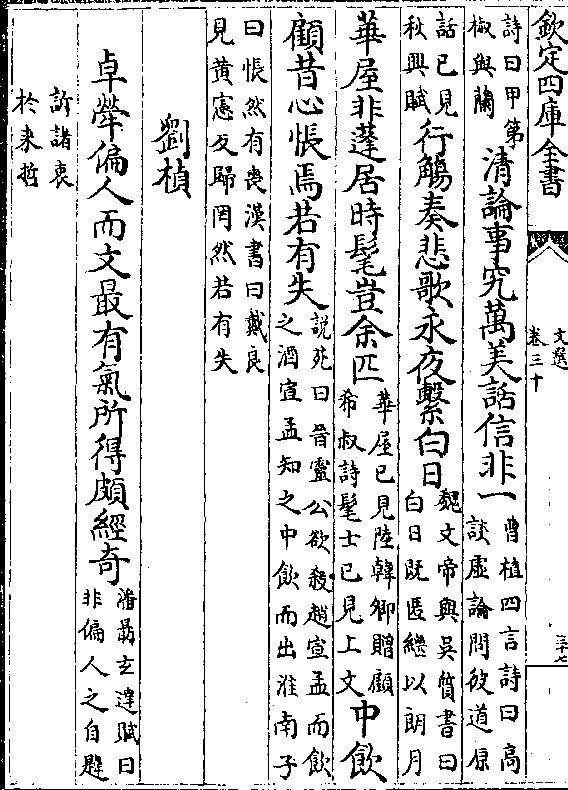 欽定四庫全書
文選
卷三十
三十七
詩曰甲第
椒與蘭
清論事究萬美話信非一
曹植四言詩曰高
談虛論問彼道原
話已見
秋興賦
行觴奏悲歌永夜繫白日
魏文帝與吳質書曰
白日既匿繼以朗月
華屋非蓬居時髦豈余匹
華屋已見陸韓卿贈顧
希叔詩髦士已見上文
中飲
顧昔心悵焉若有失
説苑曰晉靈公欲殺趙宣孟而飲
之酒宣孟知之中飲而出淮南子
曰悵然有喪漢書曰戴良
見黄憲反歸罔然若有失
劉楨
卓犖偏人而文最有氣所得頗經奇
潘勗玄達賦曰
非偏人之自韙
訴諸衷
於来哲